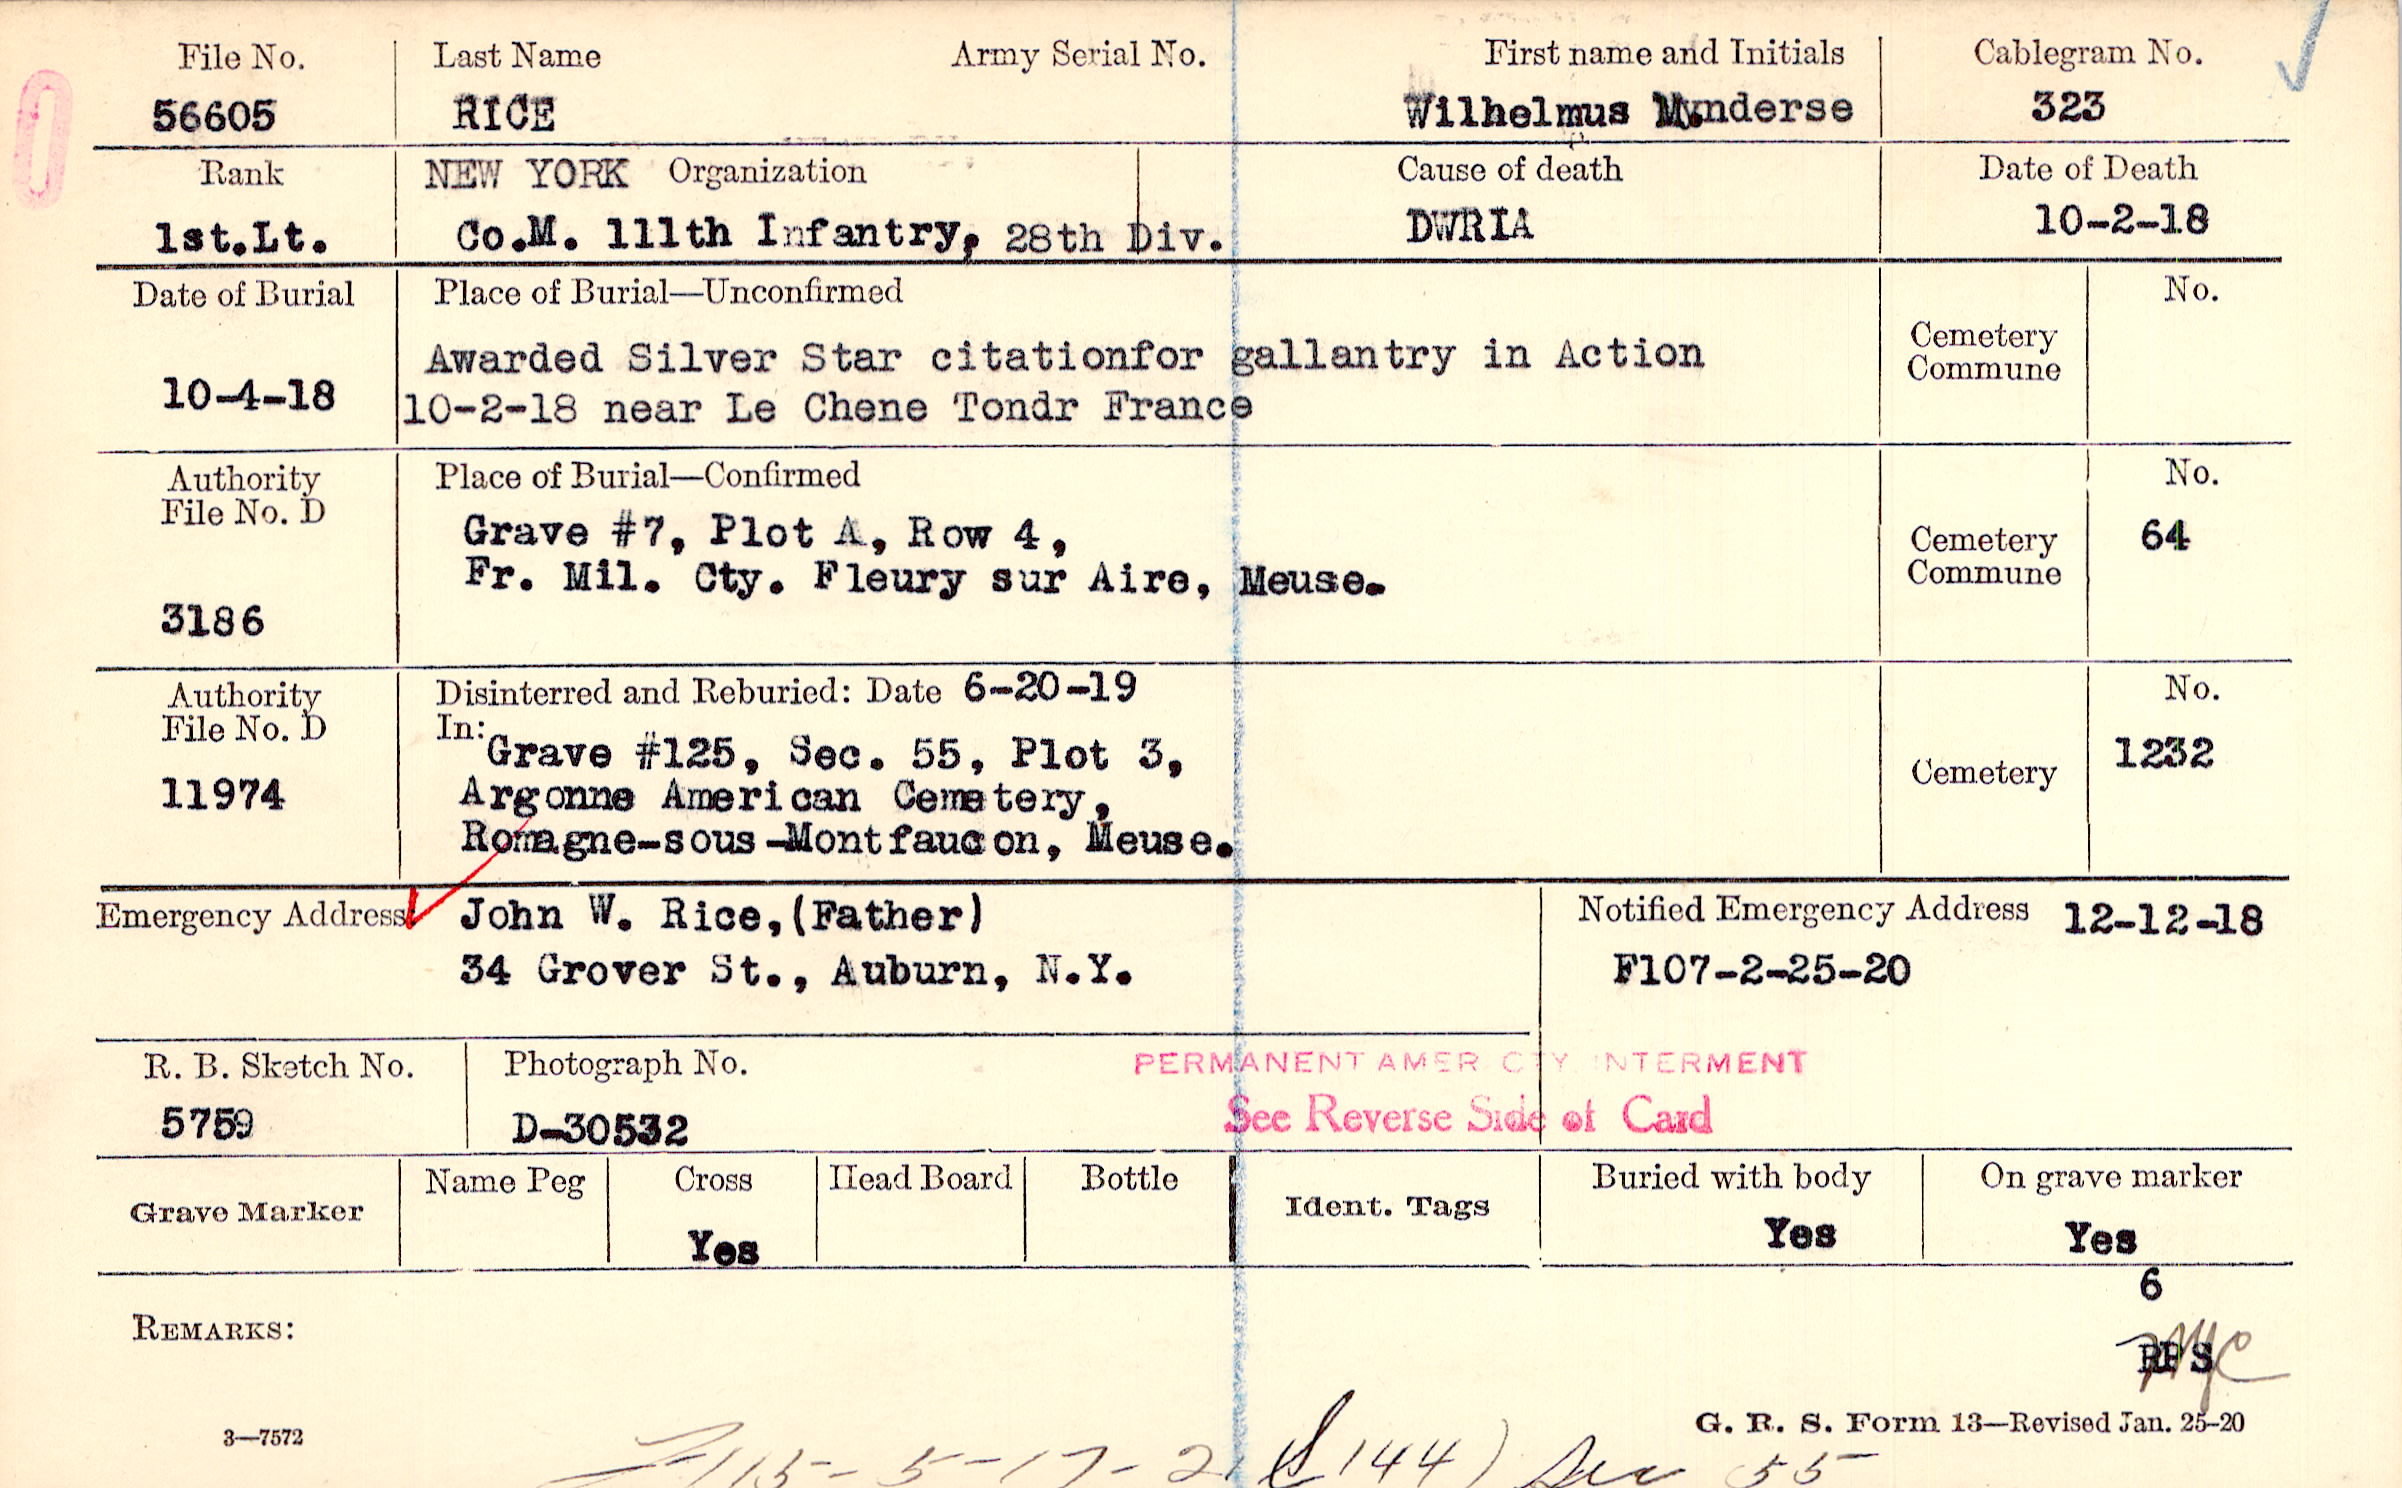 File No. Last Name Army Serial No. First name and Initials Cablegram No.
56605 RICE Wilhelmus Mynderse 323
Rank NEW YORK Organization Cause of death Date of Death
1st.Lt. Co.M. 111th Infantry, 28th Div. DWRIA 10-2-18
Date of Burial Place of Burial—Unconfirmed No.
Awarded Silver Star citationfor gallantry in Action Cemetery
Commune
10-4-18 10-2-18 near Le Chene Tondr France
Authority Place of Burial—Confirmed No.
File No. D
Grave #7, Plot A, Row 4, Cemetery 64
Fr. Mil. Cty. Fleury sur Aire, Meuse. Commune
3186
Authority Disinterred and Reburied: Date 6-20-19 No.
File No. D In:
Grave #125, Sec. 55, Plot 3, Cemetery 1232
11974 Argonne American Cemetery,
Romagne-sous-Montfaucon, Meuse.
Emergency Address John W. Rice,(Father) Notified Emergency Address 12-12-18
34 Grover St., Auburn, N.Y. F107-2-25-20
R. B. Sketch No. Photograph No. PERMANENT AMER CTY INTERMENT
5759 D-30532 See Reverse Side of Card
Grave Marker Name Peg Cross Head Board Bottle Ident. Tags Buried with body On grave marker
Yes Yes Yes
6
REMARKS:
3—7572 G. R. S. Form 13—Revised Jan. 25-20
115-5-17-21 (S 144) Sec 55